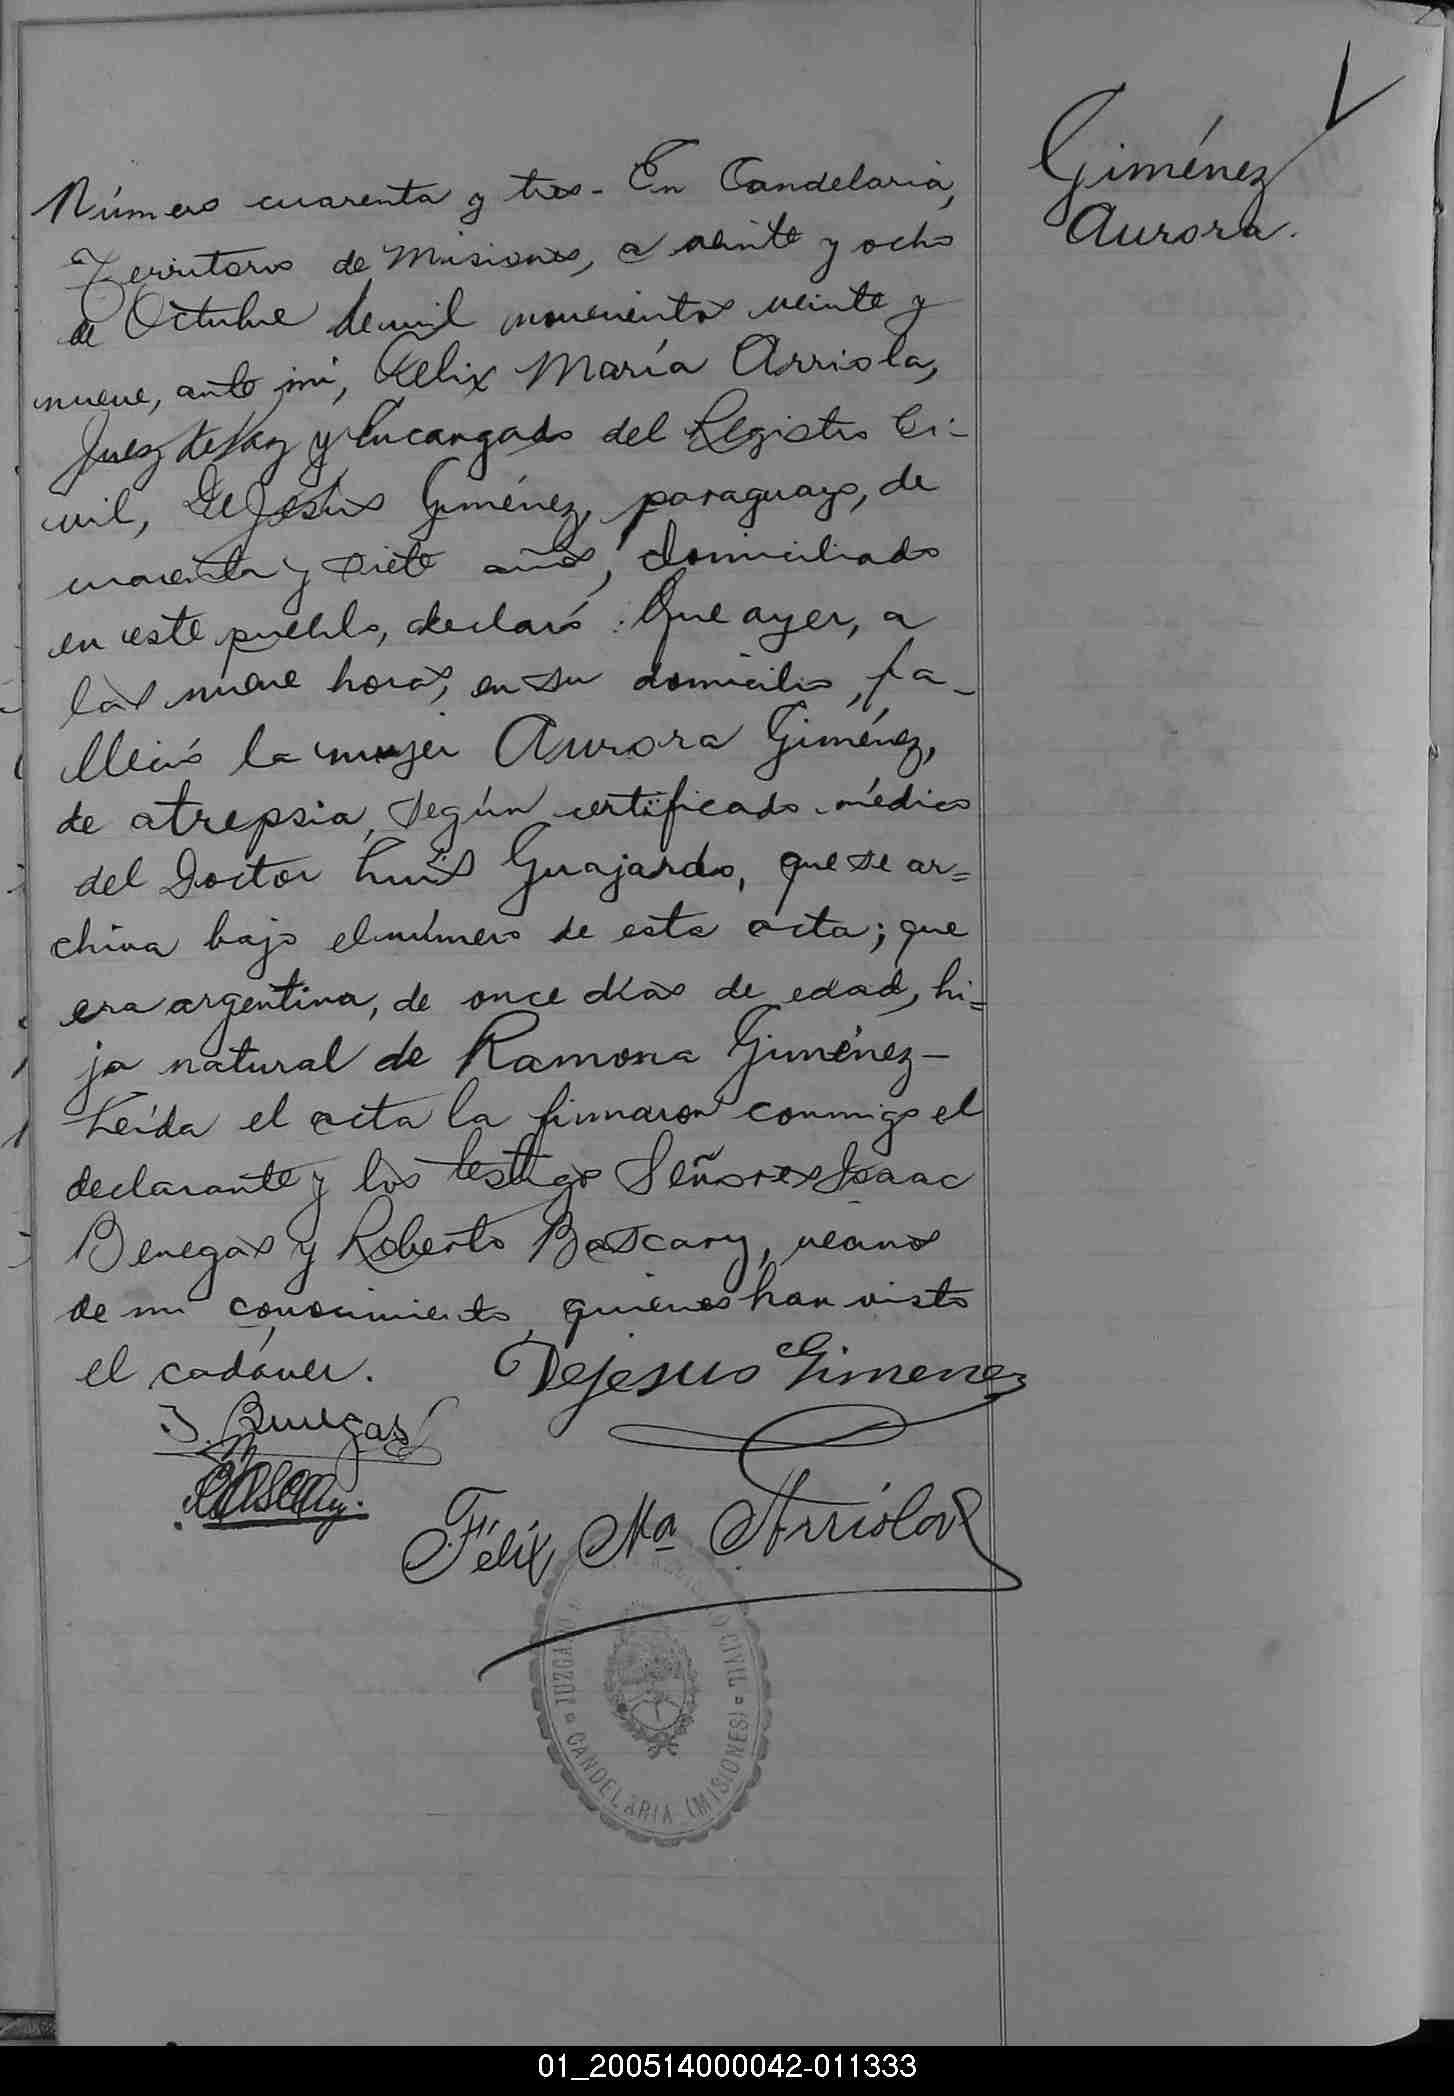 Giménez
Aurora.
Número cuarenta y tres - En Candelaria,
Territorio de Misiones, a veinte y ocho
de Octubre de mil novecientos veinte y
nueve, ante mí, Felix María Arriola,
Juez de Paz y Encargado del Registro Ci-
vil, DeJesús Giménez, paraguayo, de
cuarenta y siete años, domiciliado
en este pueblo, declaró: Que ayer, a
las nueve horas, en su domicilio, fa-
lleció la mujer Aurora Giménez,
de atrepsia, según certificado médico
del Doctor Luis Guajardo, que se ar=
chiva bajo el número de esta acta; que
era argentina, de once días de edad, hi=
ja natural de Ramona Giménez -
Leída el acta la firmaron conmigo el
declarante y los testigos Señores Isaac
Benegas y Roberto Bascary, vecinos
de mi conocimiento, quienes han visto
el cadáver.
Dejesus Gimenez
I. Benegas
RBascary.
Félix Ma Arriola
JUZGADO
REGISTRO CIVIL
CANDELARIA (MISIONES)
01_200514000042-011333